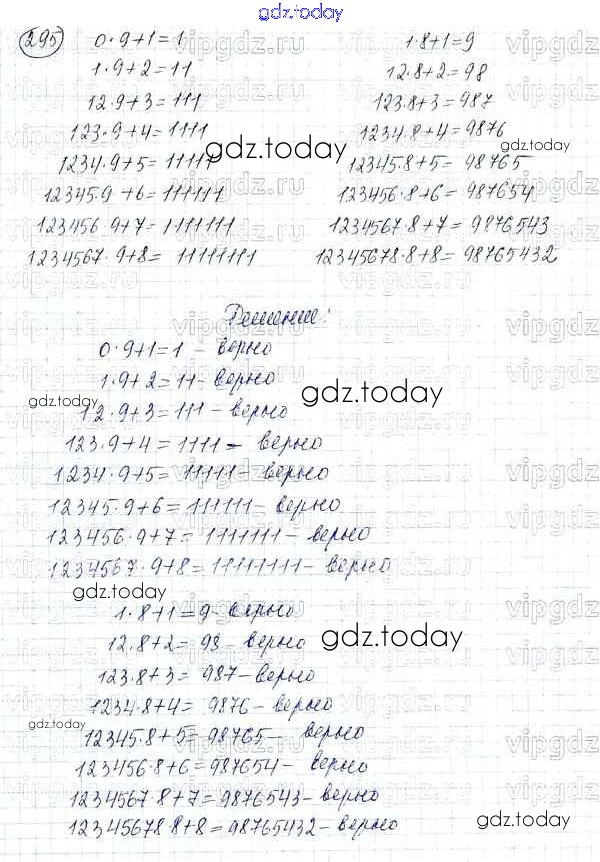 gdz.today
295
0·9+1=1
1·9+2=11
12·9+3=111
123·9+4=1111
1234·9+5=11111
12345·9+6=111111
123456·9+7=1111111
1234567·9+8=11111111
1·8+1=9
12·8+2=98
123·8+3=987
1234·8+4=9876
12345·8+5=98765
123456·8+6=987654
1234567·8+7=9876543
12345678·8+8=98765432
gdz.today
Решение:
0·9+1=1 – верно
1·9+2=11 – верно
12·9+3=111 – верно
123·9+4=1111 – верно
1234·9+5=11111 – верно
12345·9+6=111111 – верно
123456·9+7=1111111 – верно
1234567·9+8=11111111 – верно
gdz.today
gdz.today
gdz.today
1·8+1=9 – верно
12·8+2=98 – верно
123·8+3=987 – верно
1234·8+4=9876 – верно
12345·8+5=98765 – верно
123456·8+6=987654 – верно
1234567·8+7=9876543 – верно
12345678·8+8=98765432 – верно
gdz.today
gdz.today
gdz.today
vipgdz.ru